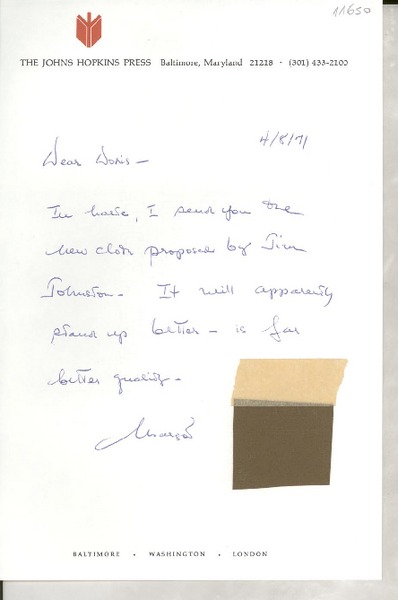 11650
THE JOHNS HOPKINS PRESS Baltimore, Maryland 21218 · (301) 433-2100
4/8/71
Dear Doris –
In haste, I send you the
new cloth proposed by Jim
Johnston. It will apparently
stand up better – is far
better quality –
Margot
BALTIMORE · WASHINGTON · LONDON